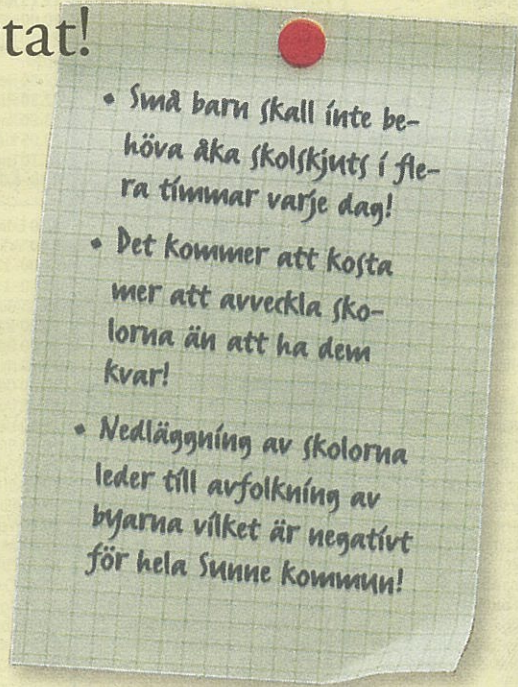 tat!
• Små barn skall inte be-
höva åka skolskjuts i fle-
ra timmar varje dag!
• Det kommer att kosta
mer att avveckla sko-
lorna än att ha dem
kvar!
• Nedläggning av skolorna
leder till avfolkning av
byarna vilket är negativt
för hela Sunne kommun!